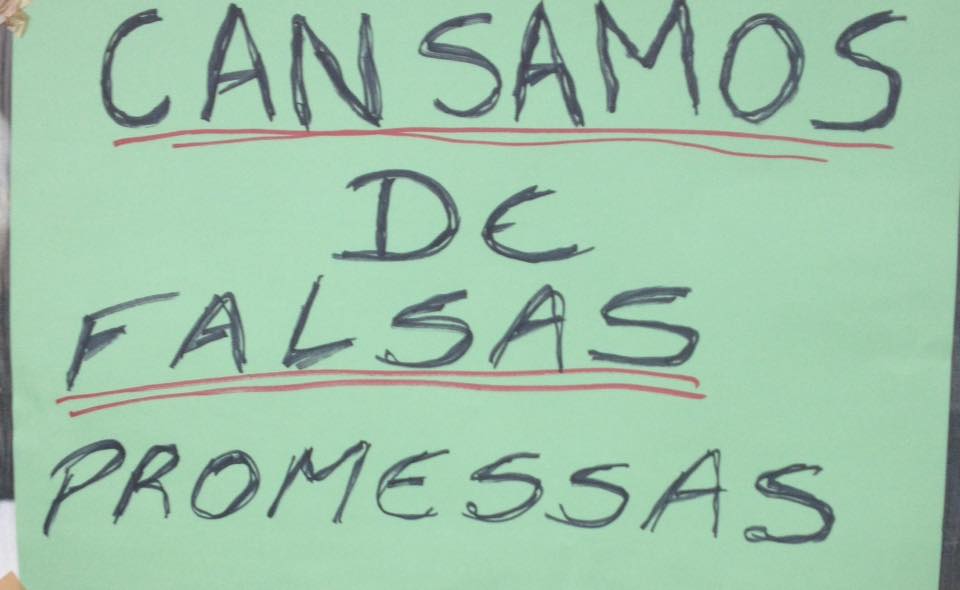 CANSAMOS
DE
FALSAS
PROMESSAS